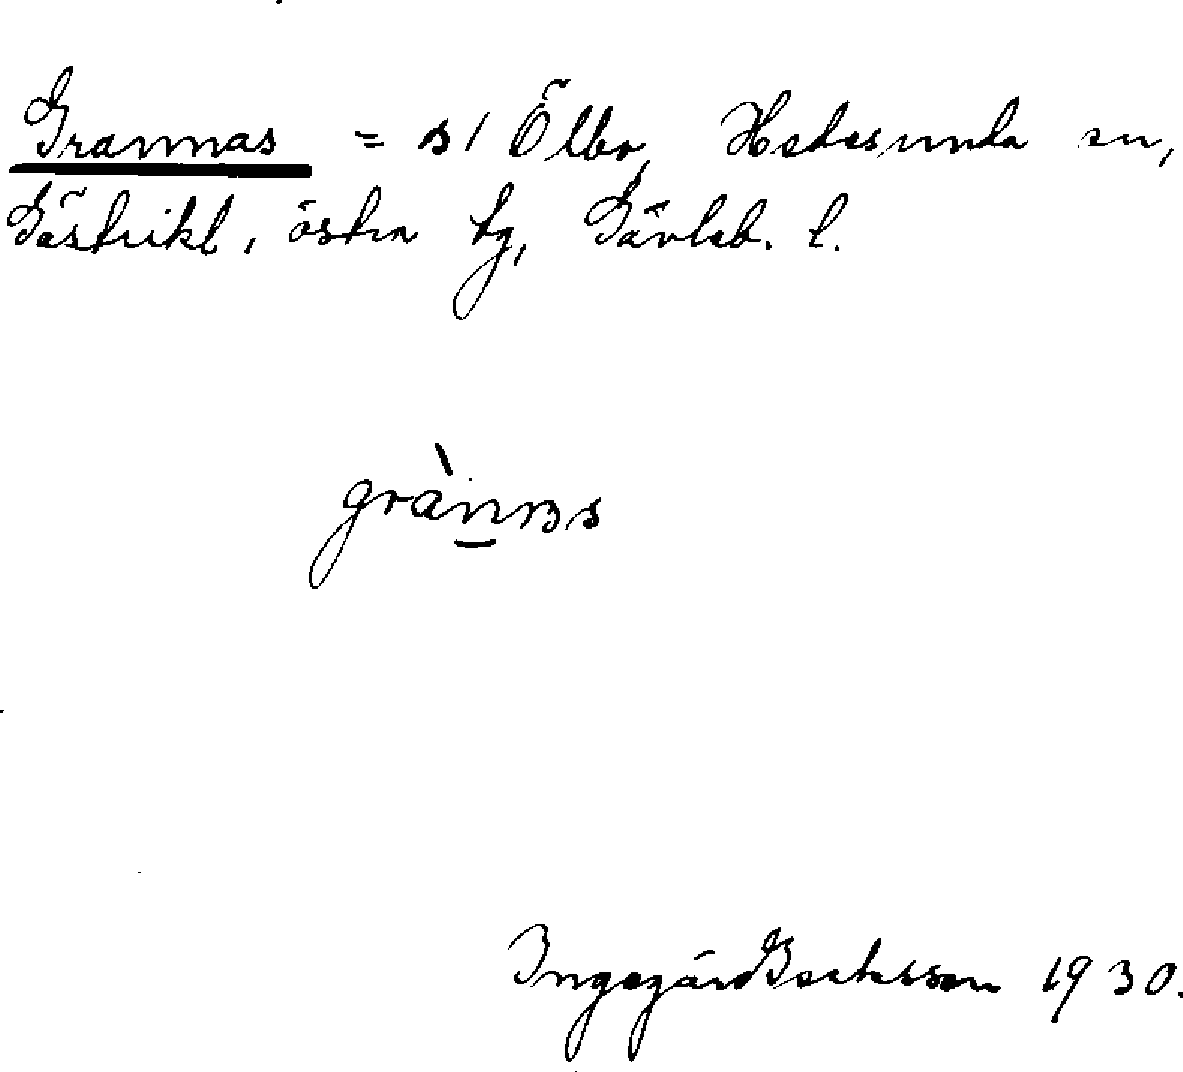 Grannas = s/ Ölbo, Hedesunda sn,
Gästrikl, östra tg, Gävleb. l.
grànnas
Ingegärd 1930.